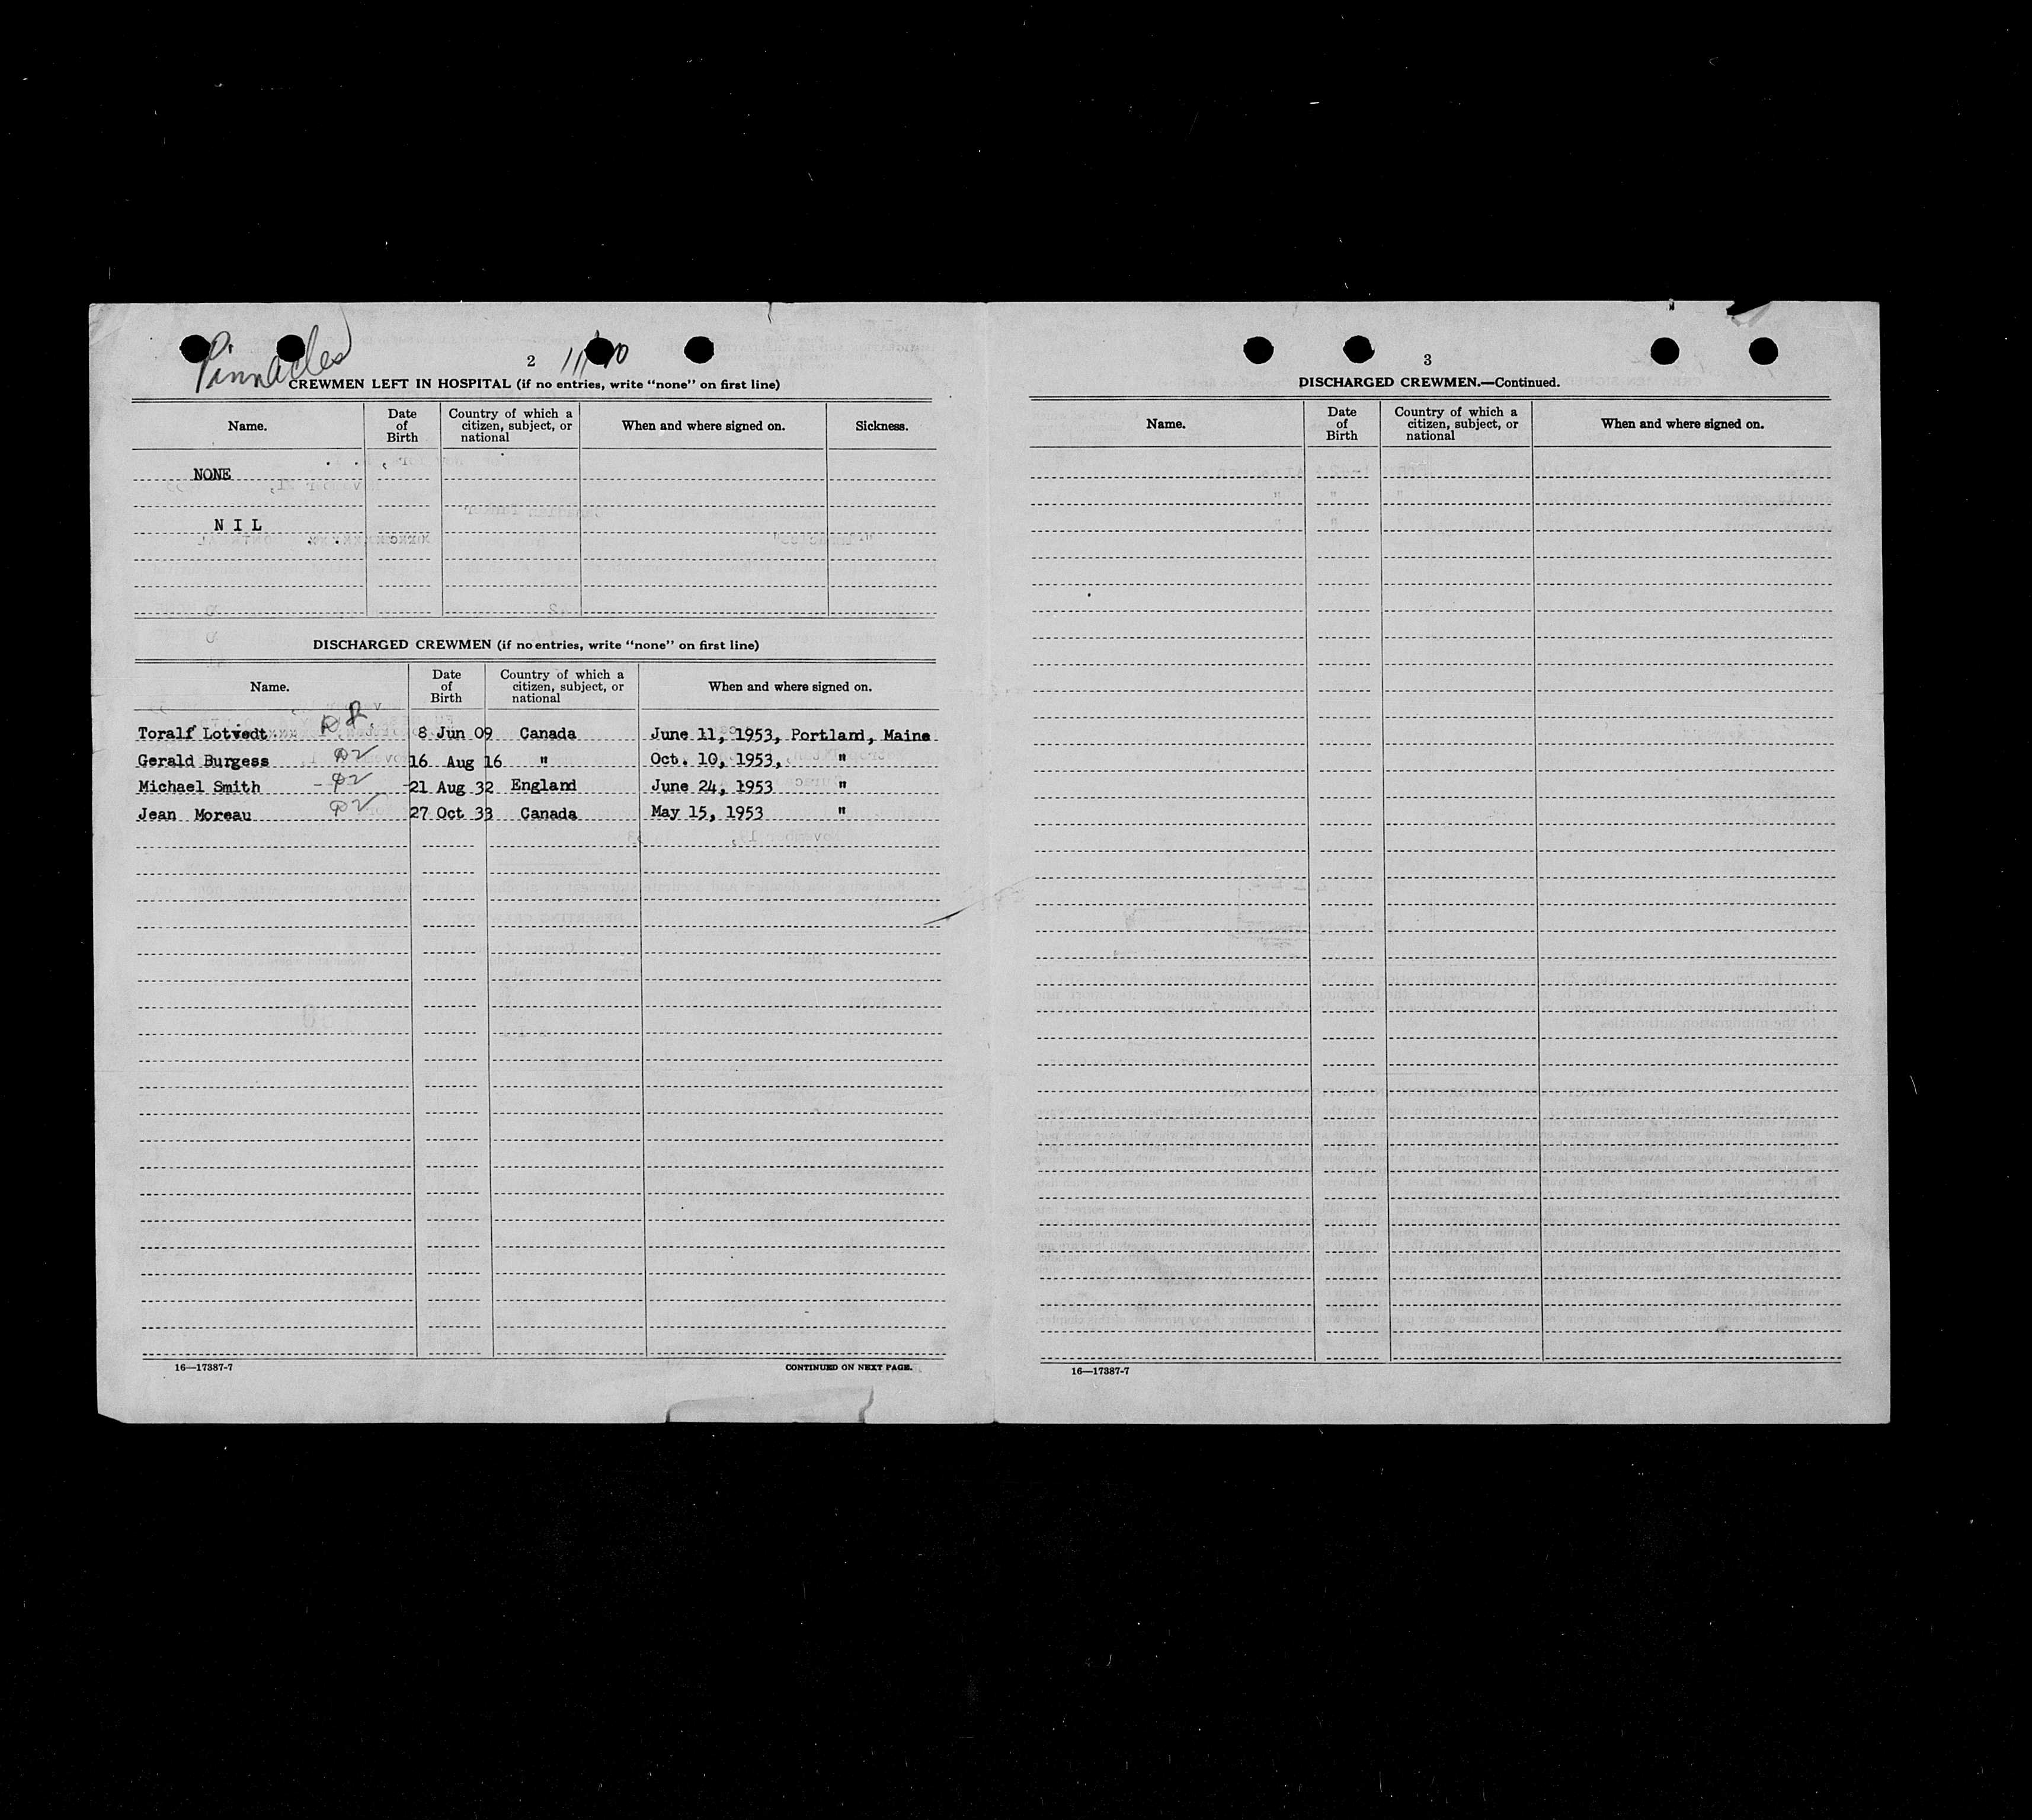 Pinnacles
2
CREWMEN LEFT IN HOSPITAL (if no entries, write "none" on first line)
Name. Date of Birth Country of which a citizen, subject, or national When and where signed on. Sickness.
NONE
N I L
DISCHARGED CREWMEN (if no entries, write "none" on first line)
Name. Date of Birth Country of which a citizen, subject, or national When and where signed on.
Toralf Lotvedt 8 Jun 09 Canada June 11, 1953, Portland, Maine
Gerald Burgess 16 Aug 16 " Oct. 10, 1953, "
Michael Smith 21 Aug 32 England June 24, 1953 "
Jean Moreau 27 Oct 33 Canada May 15, 1953 "
16—17387-7 CONTINUED ON NEXT PAGE.
3
DISCHARGED CREWMEN.—Continued.
Name. Date of Birth Country of which a citizen, subject, or national When and where signed on.
16—17387-7